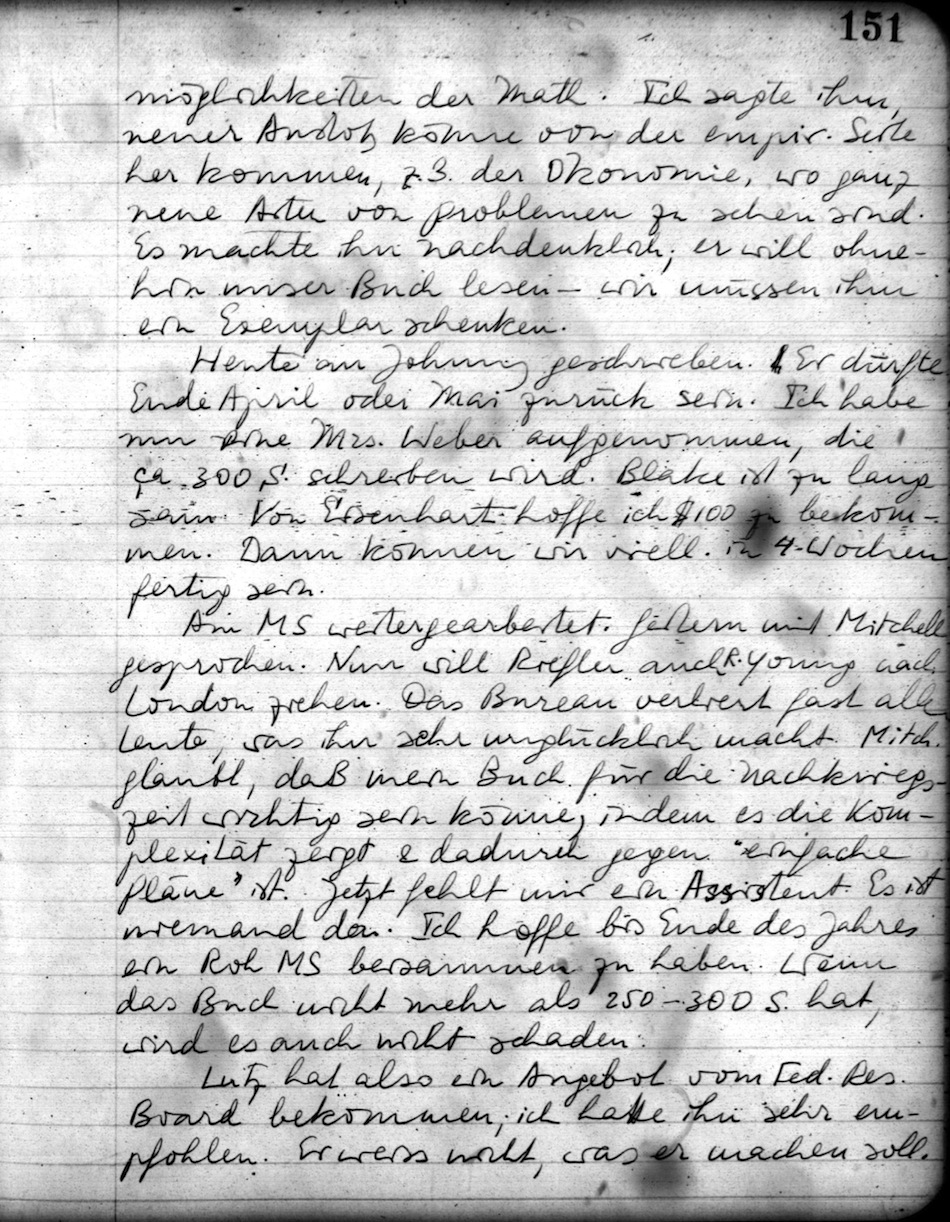 151
möglichkeiten der Math. Ich sagte ihm,
neuer Anstoß könne von der empir. Seite
her kommen, z.B. der Ökonomie, wo ganz
neue Arten von Problemen zu sehen sind.
Es machte ihn nachdenklich; er will ohne-
hin unser Buch lesen – wir müssen ihm
ein Exemplar schenken.
Heute an Johnny geschrieben. Er dürfte
Ende April oder Mai zurück sein. Ich habe
nun eine Mrs. Weber aufgenommen, die
ca 300 S. schreiben wird. Blake ist zu lang
sam. Von Eisenhart hoffe ich $100 zu bekom-
men. Dann können wir viell. in 4 Wochen
fertig sein.
Am MS weitergearbeitet. Gestern mit Mitchell
gesprochen. Nun will Riefler auch R. Young nach
London ziehen. Das Bureau verliert fast alle
Leute, was ihn sehr unglücklich macht. Mitch.
glaubt, daß mein Buch für die Nachkriegs-
zeit wichtig sein könne, indem es die Kom-
plexität zeigt & dadurch gegen "einfache
Pläne" ist. Jetzt fehlt mir ein Assistent. Es ist
niemand da. Ich hoffe bis Ende des Jahres
ein Roh MS beisammen zu haben. Wenn
das Buch nicht mehr als 250–300 S. hat,
wird es auch nicht schaden.
Lutz hat also ein Angebot vom Fed. Res.
Board bekommen; ich hatte ihn sehr em-
pfohlen. Er weiss nicht, was er machen soll.